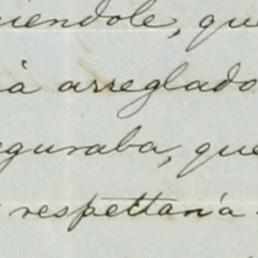 iendole, que
à arreglado
eguraba, que
respettaría